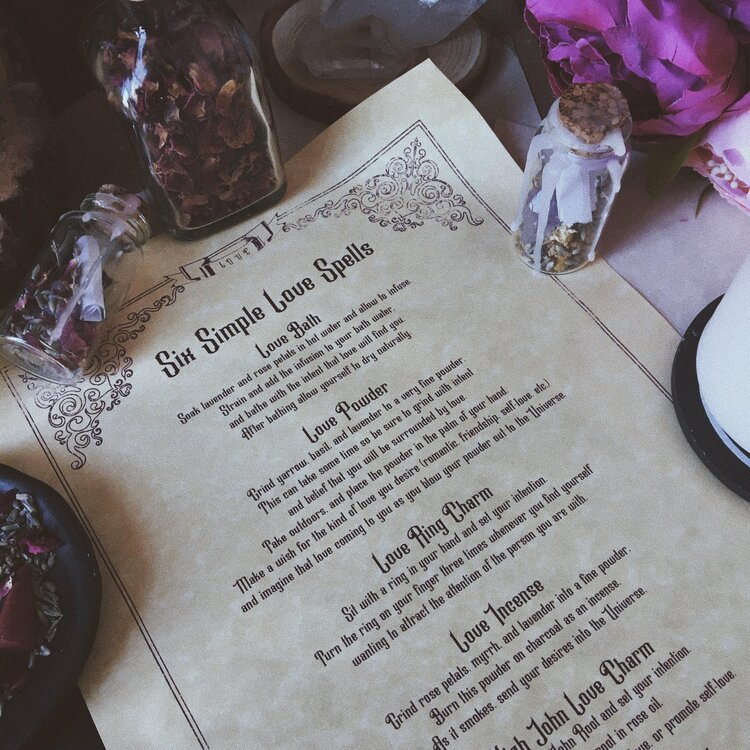 LOVE
Six Simple Love Spells
Love Bath
Soak lavender and rose petals in hot water and allow to infuse.
Strain and add the infusion to your bath water,
and bathe with the intent that love will find you.
After bathing allow yourself to dry naturally.
Love Powder
Grind yarrow, basil, and lavender to a very fine powder.
This can take some time so be sure to grind with intent
and belief that you will be surrounded by love.
Take outdoors, and place the powder in the palm of your hand.
Make a wish for the kind of love you desire (romantic, friendship, self-love etc.)
and imagine that love coming to you as you blow your powder out to the Universe.
Love Ring Charm
Sit with a ring in your hand and set your intention.
Turn the ring on your finger three times whenever you find yourself
wanting to attract the attention of the person you are with.
Love Incense
Grind rose petals, myrrh, and lavender into a fine powder.
Burn this powder on charcoal as an incense.
As it smokes, send your desires into the Universe.
John Love Charm
John Root and set your intention.
in rose oil.
or promote self-love.